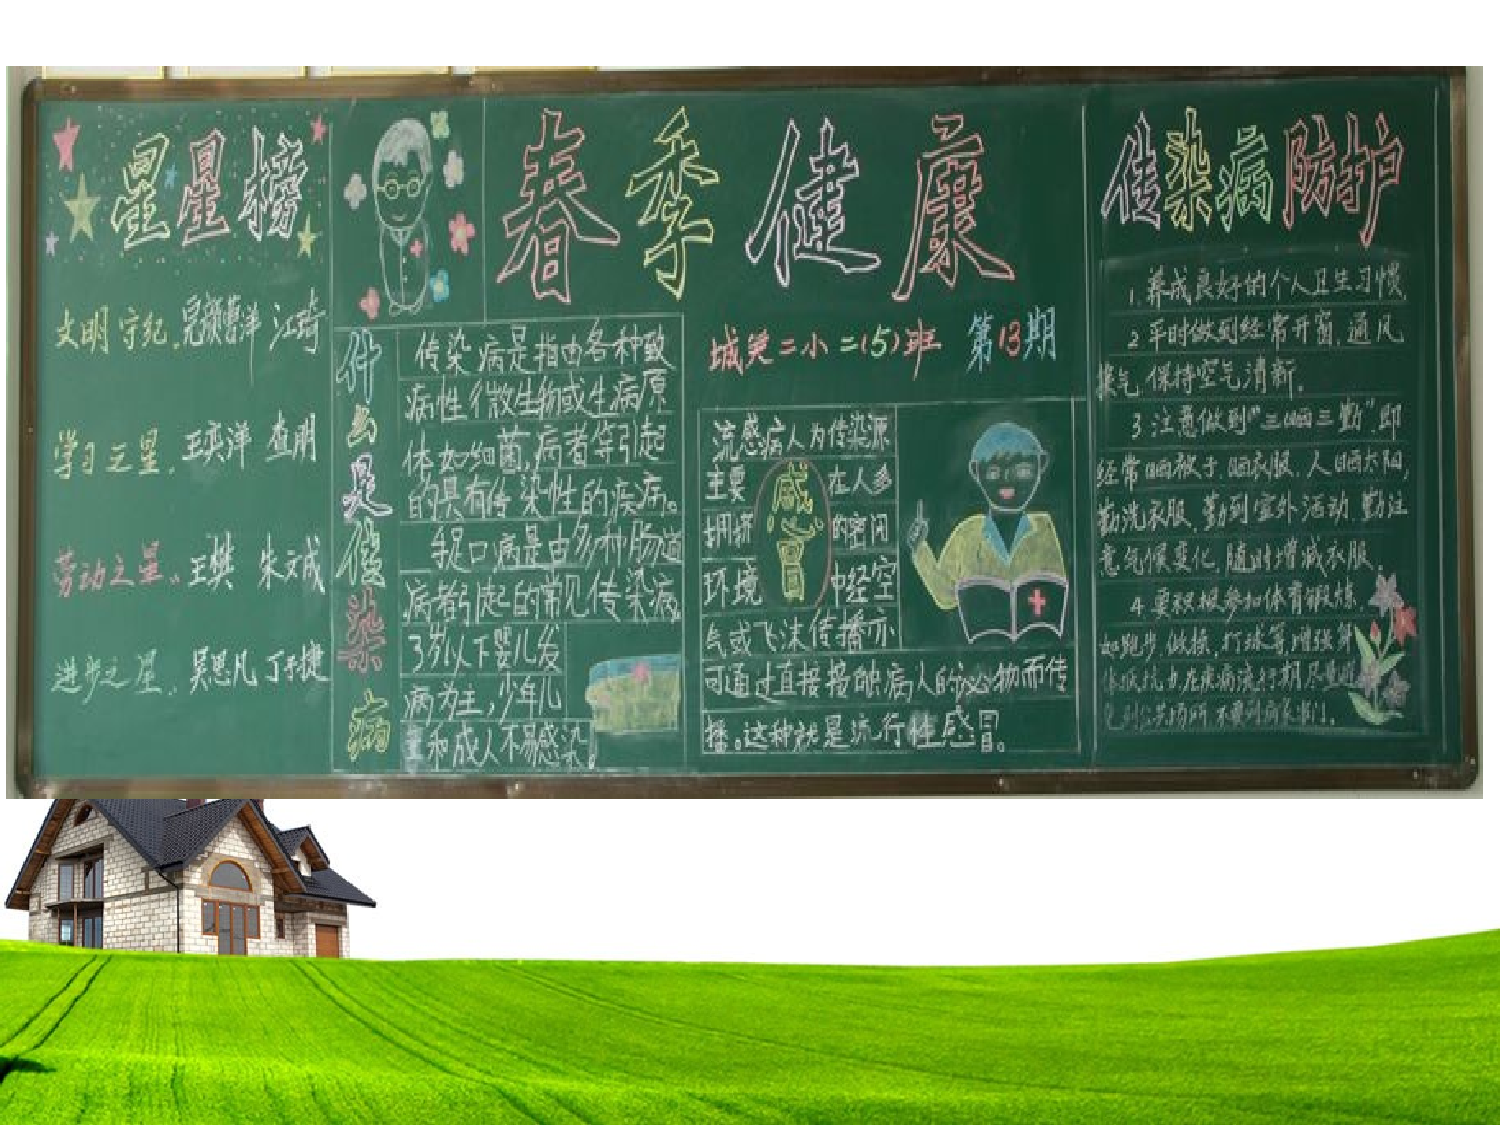 星星榜
文明守纪 完颜曹洋 江琦
学习之星 王奕洋 查明
劳动之星 王樊 朱文成
进步之星 吴思凡 丁子捷
什么是传染病
传染病是指由各种致
病性微生物或生病原
体如细菌,病者等引起
的具有传染性的疾病。
手足口病是由多种肠道
病者引起的常见传染病
3岁以下婴儿发
病为主,少年儿
童和成人不易感染
春季健康
城关二小二(5)班 第13期
感冒
流感病人为传染源
主要在人多
拥挤的空间
环境中经空
气或飞沫传播亦
可通过直接接触病人的沁物而传
播。这种就是流行性感冒。
传染病防护
1.养成良好的个人卫生习惯,
2平时做到经常开窗,通风
换气,保持空气清新。
3 注意做到"三晒三勤"即
经常晒被子,晒衣服,人晒太阳,
勤洗衣服,勤到室外活动,勤注
意气候变化,随时增减衣服。
4.要积极参加体育锻炼,
如跑步,做操,打球等,增强身
体抵抗力,在疾病流行期尽量避
免到公共场所,不要到病家串门。